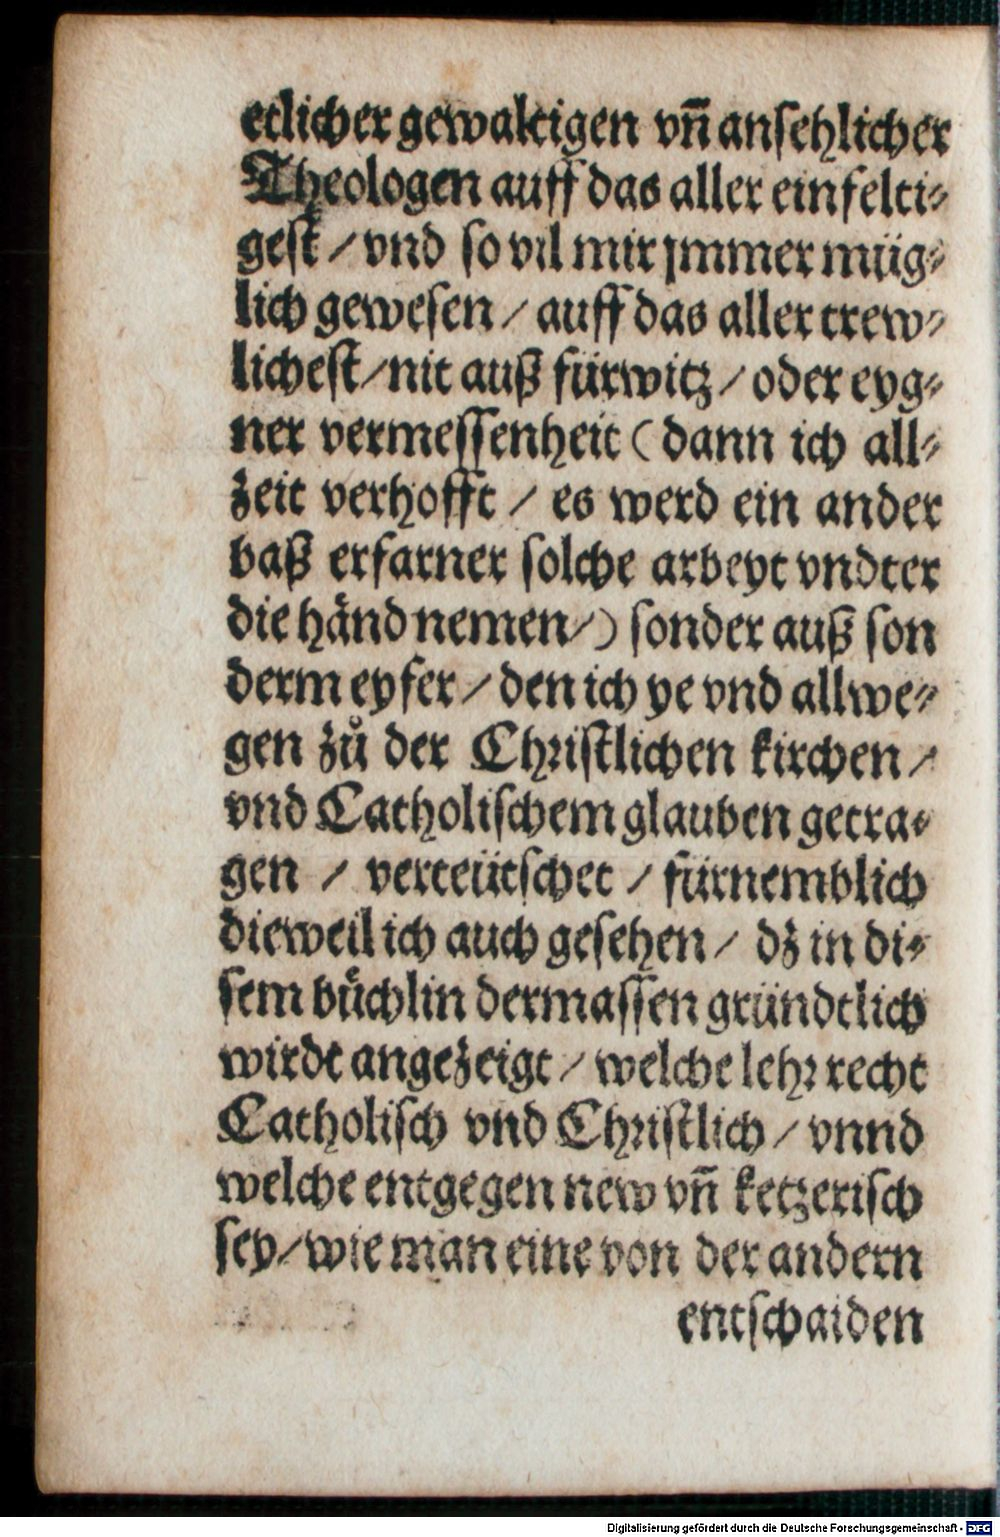 etlicher gewaltigen vñ ansehlicher
Theologen auff das aller einfelti⸗
gest / vnd so vil mir jmmer müg⸗
lich gewesen / auff das aller trew⸗
lichest / nit auß fürwitz / oder eyg⸗
ner vermessenheit ( dann ich all⸗
zeit verhofft / es werd ein ander
baß erfarner solche arbeyt vndter
die hånd nemen / ) sonder auß son
derm eyfer / den ich ye vnd allwe⸗
gen zů der Christlichen kirchen /
vnd Catholischem glauben getra⸗
gen / verteütschet / fürnemblich
dieweil ich auch gesehen / dz in di⸗
sem bůchlin dermassen gründtlich
wirdt angezeigt / welche lehr recht
Catholisch vnd Christlich / vnnd
welche entgegen new vñ ketzerisch
sey / wie man eine von der andern
entschaiden
Digitalisierung gefördert durch die Deutsche Forschungsgemeinschaft - DFG